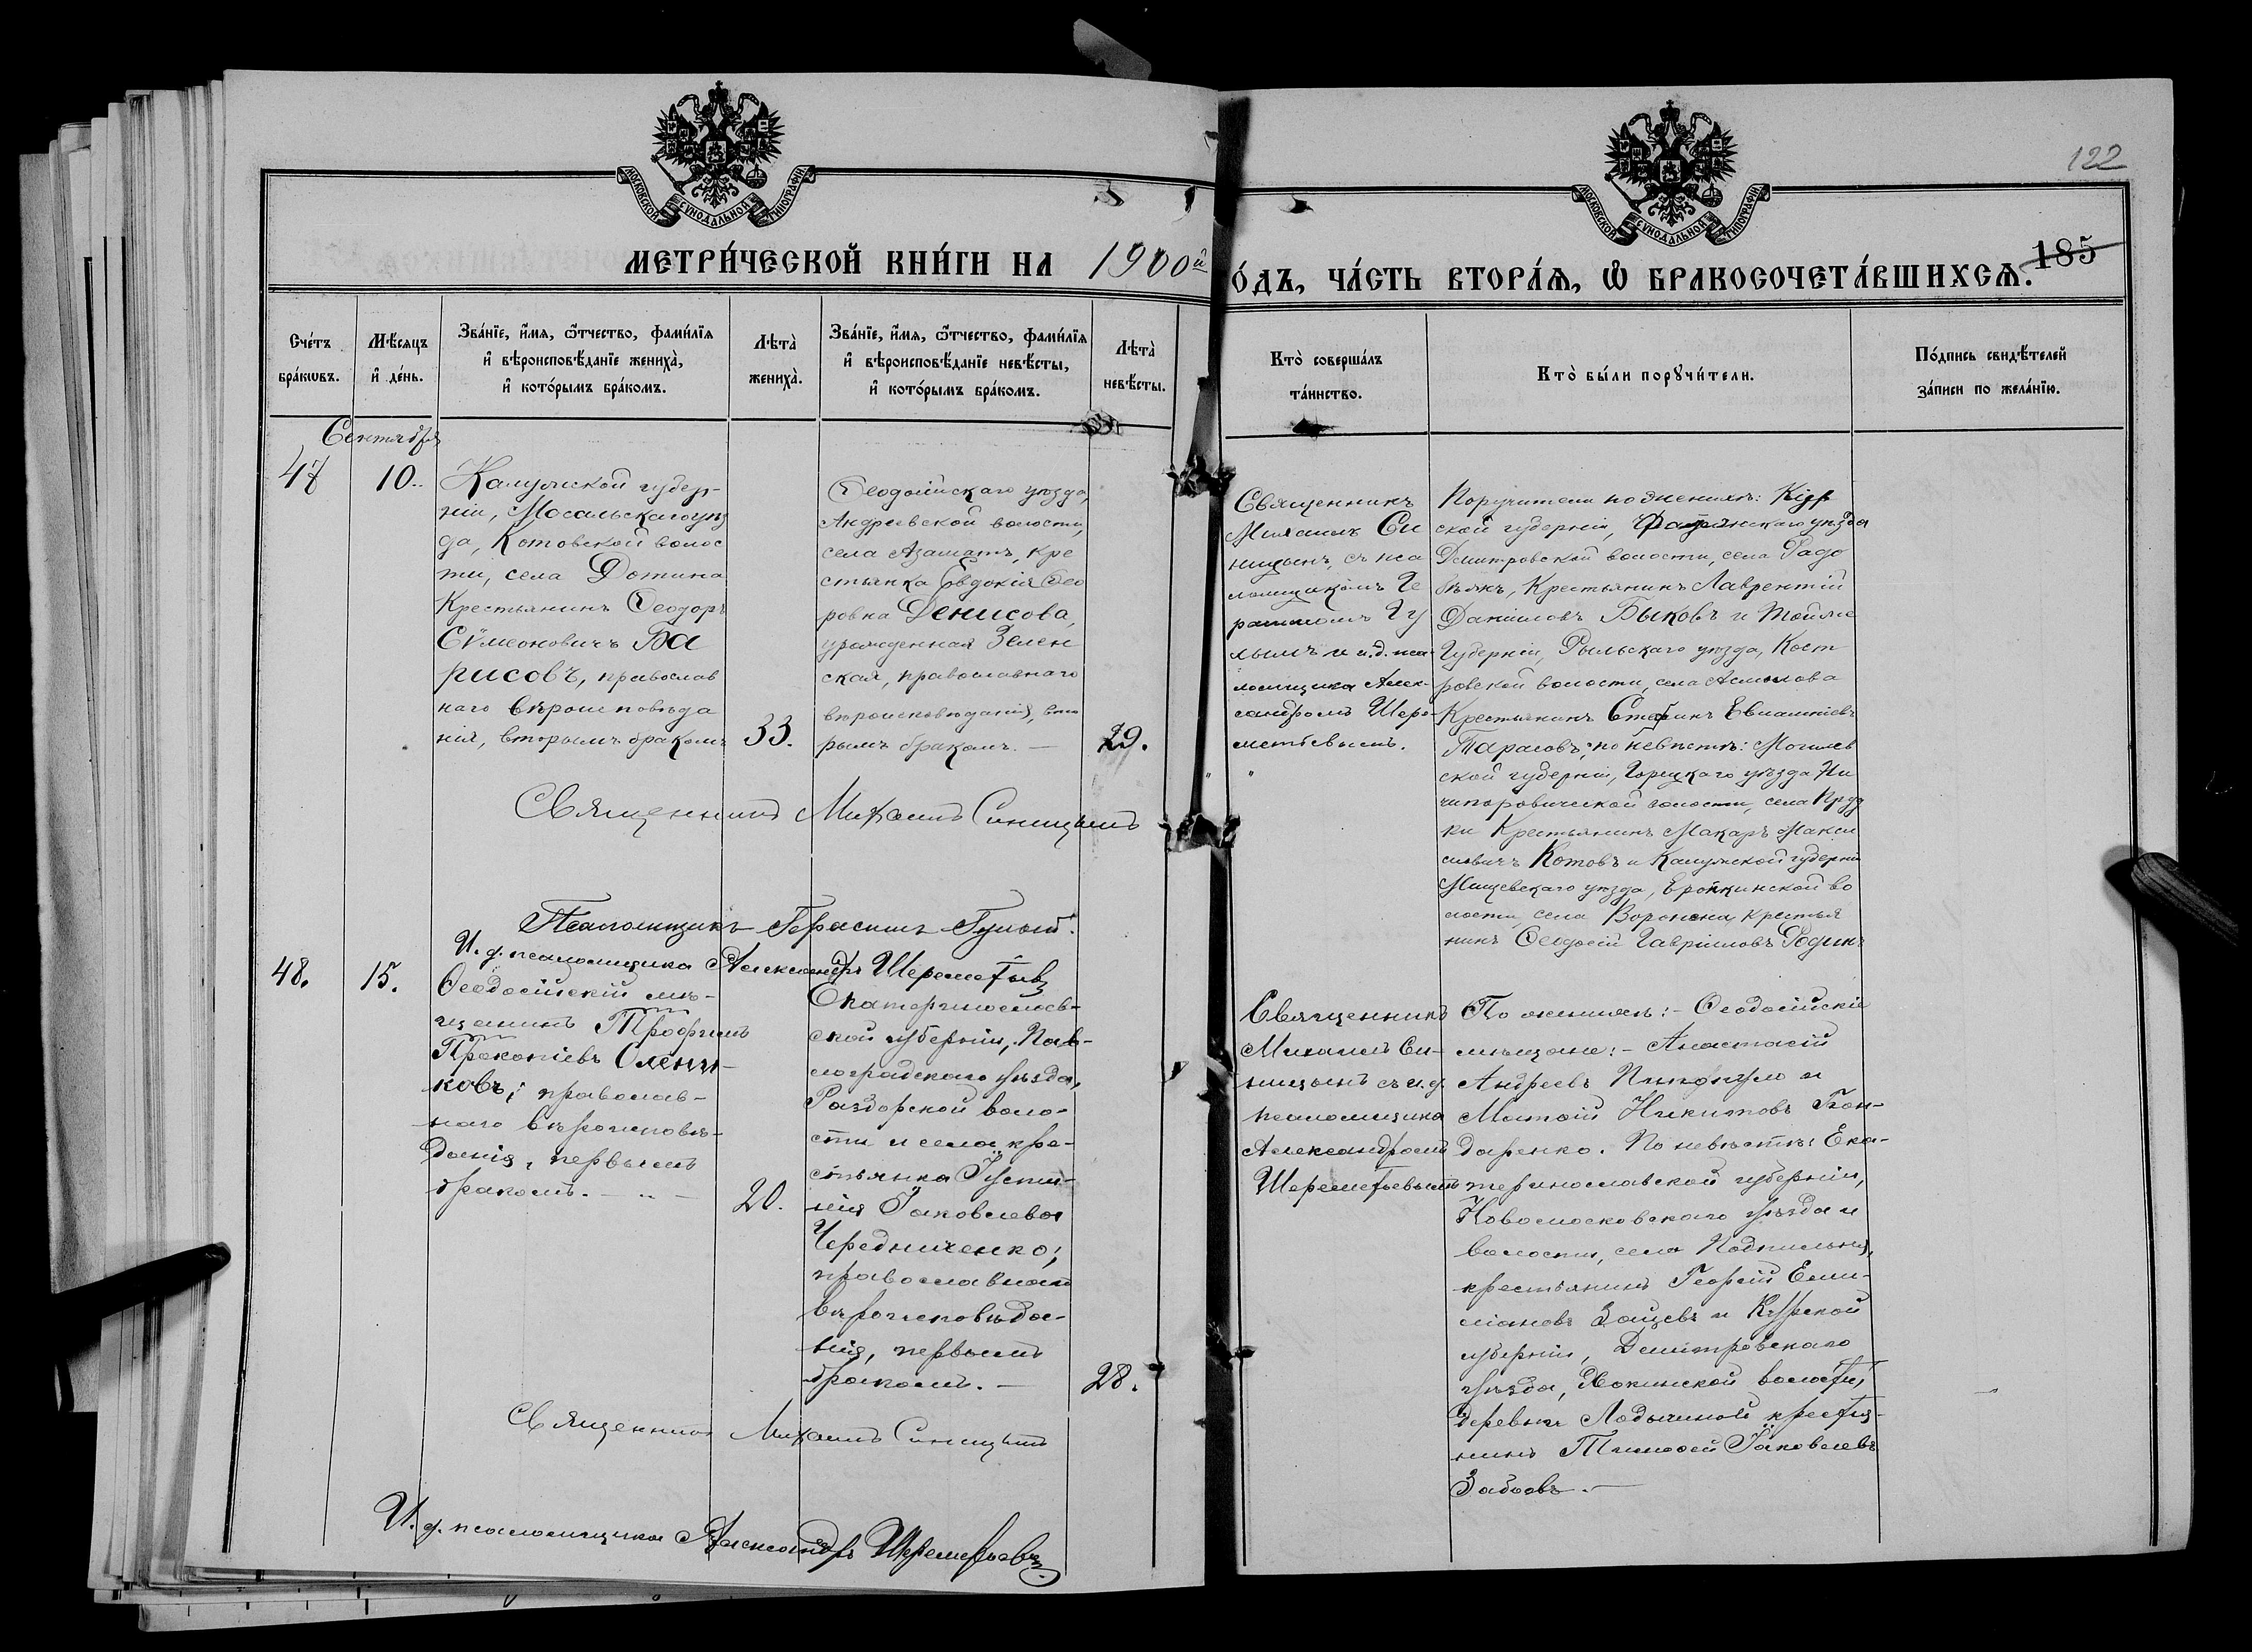 МОСКОВСКОЙ СУНОДАЛЬНОЙ ТИПОГРАФІИ
МОСКОВСКОЙ СУНОДАЛЬНОЙ ТИПОГРАФІИ
122
МЕТРИ́ЧЕСКОЙ КНИ́ГИ НА 1900й
О́ДЪ, ЧА́СТЬ ВТОРА́Я, Ѿ БРАКОСОЧЕТА́ВШИХСЯ.
185
Сче́тъ
бра́кωвъ.
Мѣ́сяцъ
и҆ де́нь.
Зва́нїе, и҆́мя, ѻ҆́тчество, фами́лїя
и҆ вѣроисповѣ́данїе жениха̀,
и҆ кото́рымъ бра́комъ.
Лѣта̀
жениха̀.
Зва́нїе, и҆́мя, ѻ҆́тчество, фами́лїя
и҆ вѣроисповѣ́данїе невѣ́сты,
и҆ кото́рымъ бра́комъ.
Лѣта̀
невѣ́сты.
Кто̀ соверша́лъ
та́инство.
Кто̀ бы́ли порꙋчи́тели.
По́дпись свидѣ́телей
за́писи по жела́нїю.
Сентября
47
10.
Калужской губер-
ніи, Мосальскаго уѣз
да, Котовской волос
ти, села Дотина
Крестьянинъ Ѳеодоръ
Сѵмеоновичъ Ба
рисовъ, православ
наго вѣроисповѣда
нія, вторымъ бракомъ
33.
Ѳеодосійскаго уѣзда,
Андреевской волости,
села Азаматъ, кре
стьянка Евдокія Ѳео
ровна Денисова,
урожденная Зелен
ская, православнаго
вѣроисповѣданія, вто
рымъ бракомъ. —
29.
Священникъ
Михаилъ Си
ницынъ, съ пса
ломщикомъ Ге
расимомъ Гу
лымъ и и.д. пса-
ломщика Алек-
сандромъ Шере-
метьевымъ.
Поручители по женихѣ: Кур
ской губерніи, уѣзда
Дмитровской волости, села
Крестьянинъ Лаврентій
Даниловъ Быковъ и тойже
Губерніи, Рыльскаго уѣзда, Кост
ровской волости, села Асмолова
Крестьянинъ Стефанъ
Тарасовъ; по невѣстѣ: Могилев
ской губерніи, Горецкаго уѣзда Ни
чипоровической волости, села Пруд
ки Крестьянинъ Макаръ Макси
мовичъ Котовъ и Калужской губерніи
Мещевскаго уѣзда, Еропкинской во
лости, села Воронена, крестья
нинъ Ѳеодосій Гавріиловъ Родинъ
Священникъ Михаилъ Синицынъ
Псаломщикъ Герасимъ Гулый.
И. д. псаломщика Александръ Шереметьевъ
48.
15.
Ѳеодосійскій мѣ-
щанинъ Трофимъ
Прокопіевъ Олейни-
ковъ; православ-
наго вѣроисповѣ-
данія, первымъ
бракомъ. —
20.
Екатеринослав-
ской губерніи, Пав-
лоградскаго уѣзда,
Раздорской воло-
сти и села кре-
стьянка Іусти-
нія Іаковлева
Чередниченко;
православнаго
вѣроисповѣда-
нія, первымъ
бракомъ. —
28.
Священникъ
Михаилъ Си-
ницынъ съ и.д.
псаломщика
Александромъ
Шереметьевымъ
По женихѣ: — Ѳеодосійскіе
мѣщане: — Анастасій
Андреевъ и
Никитовъ Бон-
даренко. По невѣстѣ: Ека-
теринославской губерніи,
Новомосковскаго уѣзда и
волости, села Подпильня,
крестьянинъ Георгій Еми-
ліановъ Зайцевъ и Курской
губерніи, Дмитровскаго
уѣзда, волости,
деревни Лодыжиной крестья-
нинъ Тимоѳей Іаковлевъ
Священникъ Михаилъ Синицынъ
И. д. псаломщика Александръ Шереметьевъ